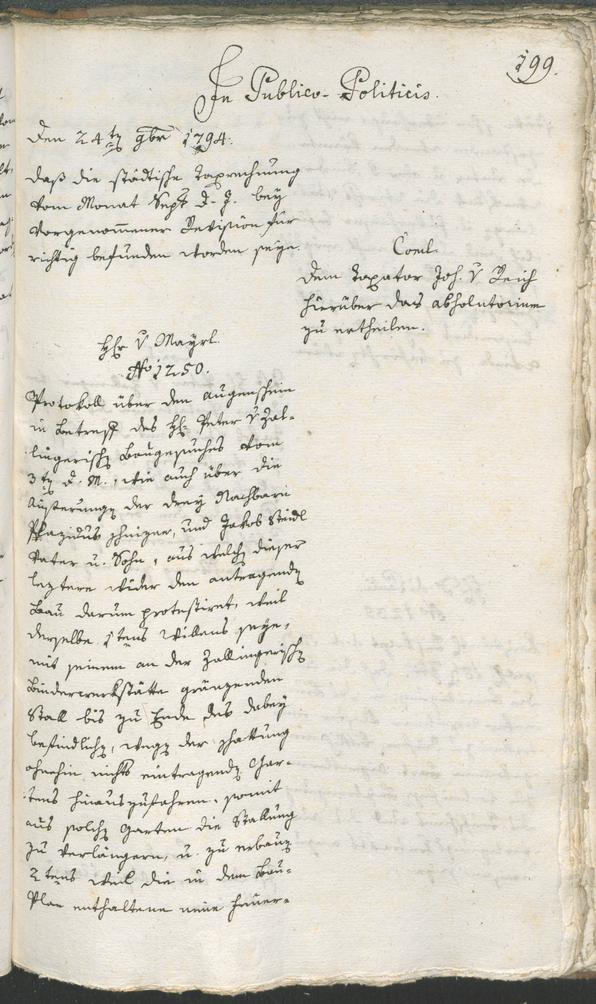 199.
In Publico-Politicis.
Den 24tn 9br 1794.
Daß die städtische Taxrechnung
vom Monat Sept. d. J. bey
vorgenommener Revision für
richtig befunden worden seye.
Concl.
Dem Taxator Joh. v Reich
hierüber das absolutorium
zu ertheilen.
Hr v Mayrl.
No 1250.
Protokoll über den Augenschein
in Betreff des H: Peter v Zal-
lingerischn Baugesuches vom
3tn d. M., wie auch über die
Äußerungn der drey Nachbarn
Plazidus, und Jakob Stedl
Vater u. Sohn, aus welchn dieser
leztere wider den antragendn
Bau darum protestiret, weil
derselbe 1tens Willens seye,
mit seinem an der Zallingerischn
Binderwerkstätte gränzenden
Stall bis zu Ende des dabey
befindlichn, wegn der Schattung
ohnehin nichts eintragendn Gar-
tens hinauszufahren, somit
aus solchn Garten die Stallung
zu verlängern, u. zu erbaun
2tens weil die in dem Bau-
Plan enthaltene neue Feuer-